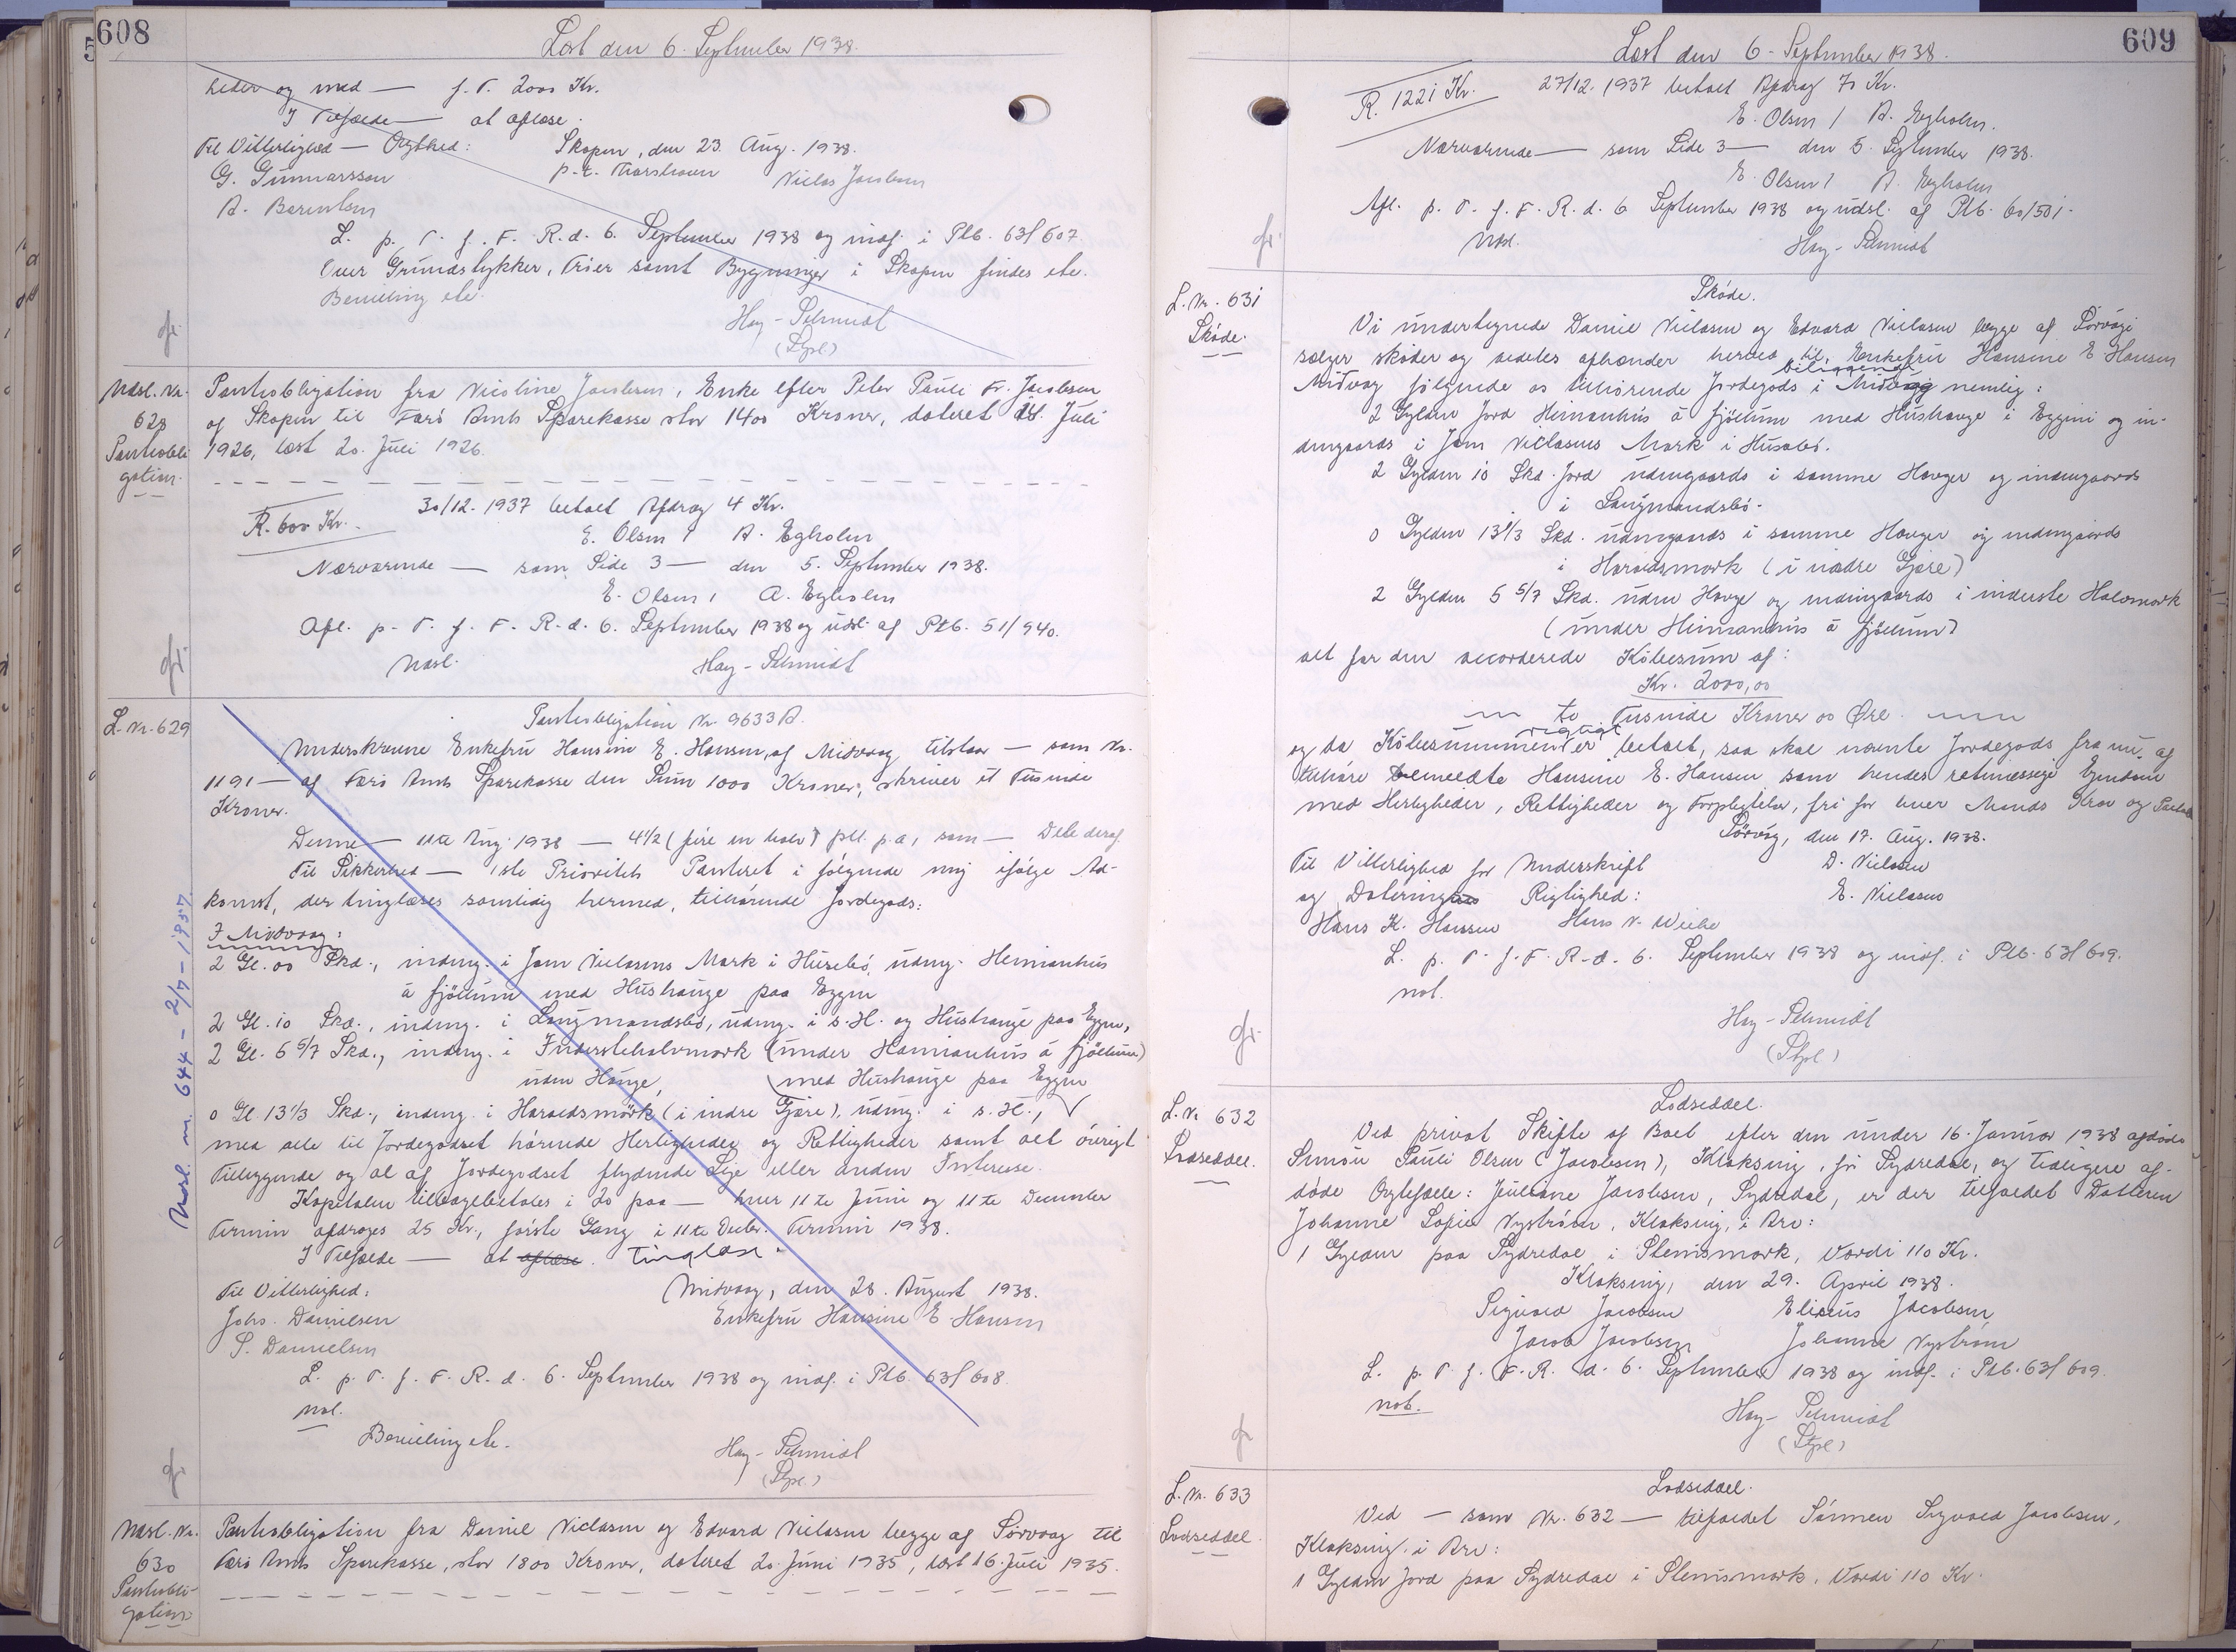 608
Læst den 6. September 1938.
heder og med — f. T. 2000 Kr.
I Tilfælde — at aflæse.
Til Vitterlighed — Rigtighed: Skopun, den 23. Aug. 1938.
G. Gunnarsson p.t. Thorshavn Niclas Jacobsen
A. Berentsen
L. p. T. f. F. R. d. 6. September 1938 og indf. i Ptb. 63/607.
Over Grundstykker, Tröer samt Bygninger i Skopun findes ete.
Bevilling ete.
Hay-Schmidt
(Stpl)
Udsl. Nr. 628 Pantobligation
Pantobligation fra Nicoline Jacobsen, Enke efter Peter Pauli Fr. Jacobsen
af Skopun til Færö Amts Sparekasse stor 1400 Kroner, dateret Juli
1926, læst 20. Juli 1926.
R. 600 Kr. 30/12. 1937 betalt Afdrag 4 Kr.
E. Olsen / A. Egholm
Nærværende — som Side 3 — den 5. September 1938.
E. Olsen / A. Egholm
Afl. p. T. f. F. R. d. 6. September 1938 og udsl. af Ptb. 51/940.
Udsl. Hay-Schmidt
L. Nr. 629
Pantobligation Nr. 9633 A.
Underskrevne Enkefru Hansine E. Hansen, af Midvaag tilstaar — som Nr.
1191 — af Færö Amts Sparekasse den Sum 1000 Kroner, skriver et Tusinde
Kroner.
Denne — 11te Aug. 1938 — 4 1/2 (fire en halv) pCt. p.a, som — Dele deraf
Til Sikkerhed — 1ste Prioritets Panteret i fölgende mig ifölge Ad-
komst, der tinglæses samtidig hermed, tilhörende Jordegods:
I Midvaag:
2 Gl. 00 Skd., indmg. i Jam Niclasens Mark i Húsabö, udmg. Heimanhús
á fjöllum med Hushauge paa Eggen
2 Gl. 10 Skd., indmg. i Langmandsbö, udmg. i s. H. og Hushauge paa Eggen,
2 Gl. 5 5/7 Skd., indmg. i Inderstehalvmork (under Hamianhus á fjöllum)
uden Hauge, (med Hushauge paa Eggen
0 Gl. 13 1/3 Skd., indmg. i Haraldsmörk (i indre Gjære), udmg. i s. H., √
med alle til Jordegodset hörende Herligheder og Rettigheder samt alt övrigt
Tilliggende og al af Jordegodset flydende Leje eller anden Interesse.
Kapitalen tilbagebetales i 20 paa — hver 11te Juni og 11te December
Termin afdrages 25 Kr., förste Gang i 11te Decbr. Termin 1938.
I Tilfælde — at aflæse. Tinglæse.
Til Vitterlighed: Midvaag, den 28. August 1938.
Johs. Danielsen Enkefru Hansine E. Hansen
S. Danielsen
L. p. T. f. F. R. d. 6. September 1938 og indf. i Ptb. 63/608.
not.
Bevilling ete.
Hay-Schmidt
(Stpl.)
Udsl. nr. 644 - 2/7 - 1957.
Udsl. Nr. 630 Pantobligation
Pantobligation fra Daniel Niclasen og Edvard Niclasen begge af Sörvaag til
Færö Amts Sparekasse, stor 1800 Kroner, dateret 20. Juni 1935, læst 16. Juli 1935.
609
Læst den 6. September 1938.
R. 1221 Kr. 27/12. 1937 betalt Afdrag 70 Kr.
E. Olsen / A. Egholm.
Nærværende — som Side 3 — den 5. September 1938.
E. Olsen / A. Egholm
Afl. p. T. f. F. R. d. 6 September 1938 og udsl. af Ptb. 60/501.
Udsl. Hay-Schmidt
L. Nr. 631
Sköde.
Sköde.
Vi undertegnede Daniel Niclasen og Edvard Niclasen begge af Sörvági
sælger sköder og aldeles afhænder herved til Enkefru Hansine E Hansen
Midvag fölgende os tilhörende Jordegods i Midvag beliggende nemlig:
2 Gylden Jord Heimanhús á fjöllum med Hushauge i Eggini og in-
dengaards i Jam Niclasens Mark i Húsabö.
2 Gylden 10 Skd. Jord udengaards i samme Hauger og indengaards
i Langmandsbö.
0 Gylden 13 1/3 Skd. udengaards i samme Hauger og indengaards
i Haraldsmork (i inadre Gjære)
2 Gylden 5 5/7 Skd. uden Hauge og indengaards i inderste Halvmork
(under Heimanhús á fjöllum)
alt for den accorderede Köbesum af:
Kr. 2000,00
to Tusinde Kroner 00 Öre.
og da Köbesummen er rigtigt betalt, saa skal nævnte Jordegods fra nu af
tilhöre bemeldte Hansine E. Hansen som hendes retmæssige Ejendom
med Herligheder, Rettigheder og Forpligtelser, fri for hver Mands Krav og
Sörvág, den 17. Aug. 1938.
Til Vitterlighed for Underskrift D. Niclasen
og Dateringens Rigtighed: E. Niclasen
Hans K. Hansen Hans N. Weihe
L. p. T. f. F. R. d. 6. September 1938 og indf. i Ptb. 63/609.
not.
Hay-Schmidt
(Stpl)
L. Nr. 632
Lodseddel.
Lodseddel.
Ved privat Skifte af Boet efter den under 16. Januar 1938 afdöde
Simon Pauli Olsen (Jacobsen), Klaksvig, fra Sydredal, og tidligere af-
döde Ægtefælle: Juliane Jacobsen, Sydredal, er der tilfaldet Datteren
Johanne Sofie Nyström, Klaksvig, i Arv:
1 Gylden paa Sydredal i Stenismork, Værdi 110 Kr.
Klaksvig, den 29. April 1938.
Sigvald Jacobsen Elieius Jacobsen
Jacob Jacobsen Johanne Nyström
L. p. T. f. F. R. d. 6. September 1938 og indf. i Ptb. 63/609.
not.
Hay-Schmidt
(Stpl)
L. Nr. 633
Lodseddel.
Lodseddel.
Ved — som Nr. 632 — tilfaldet Sönnen Sigvald Jacobsen,
Klaksvig i Arv:
1 Gylden Jord paa Sydredal i Stenismork. Værdi 110 Kr.